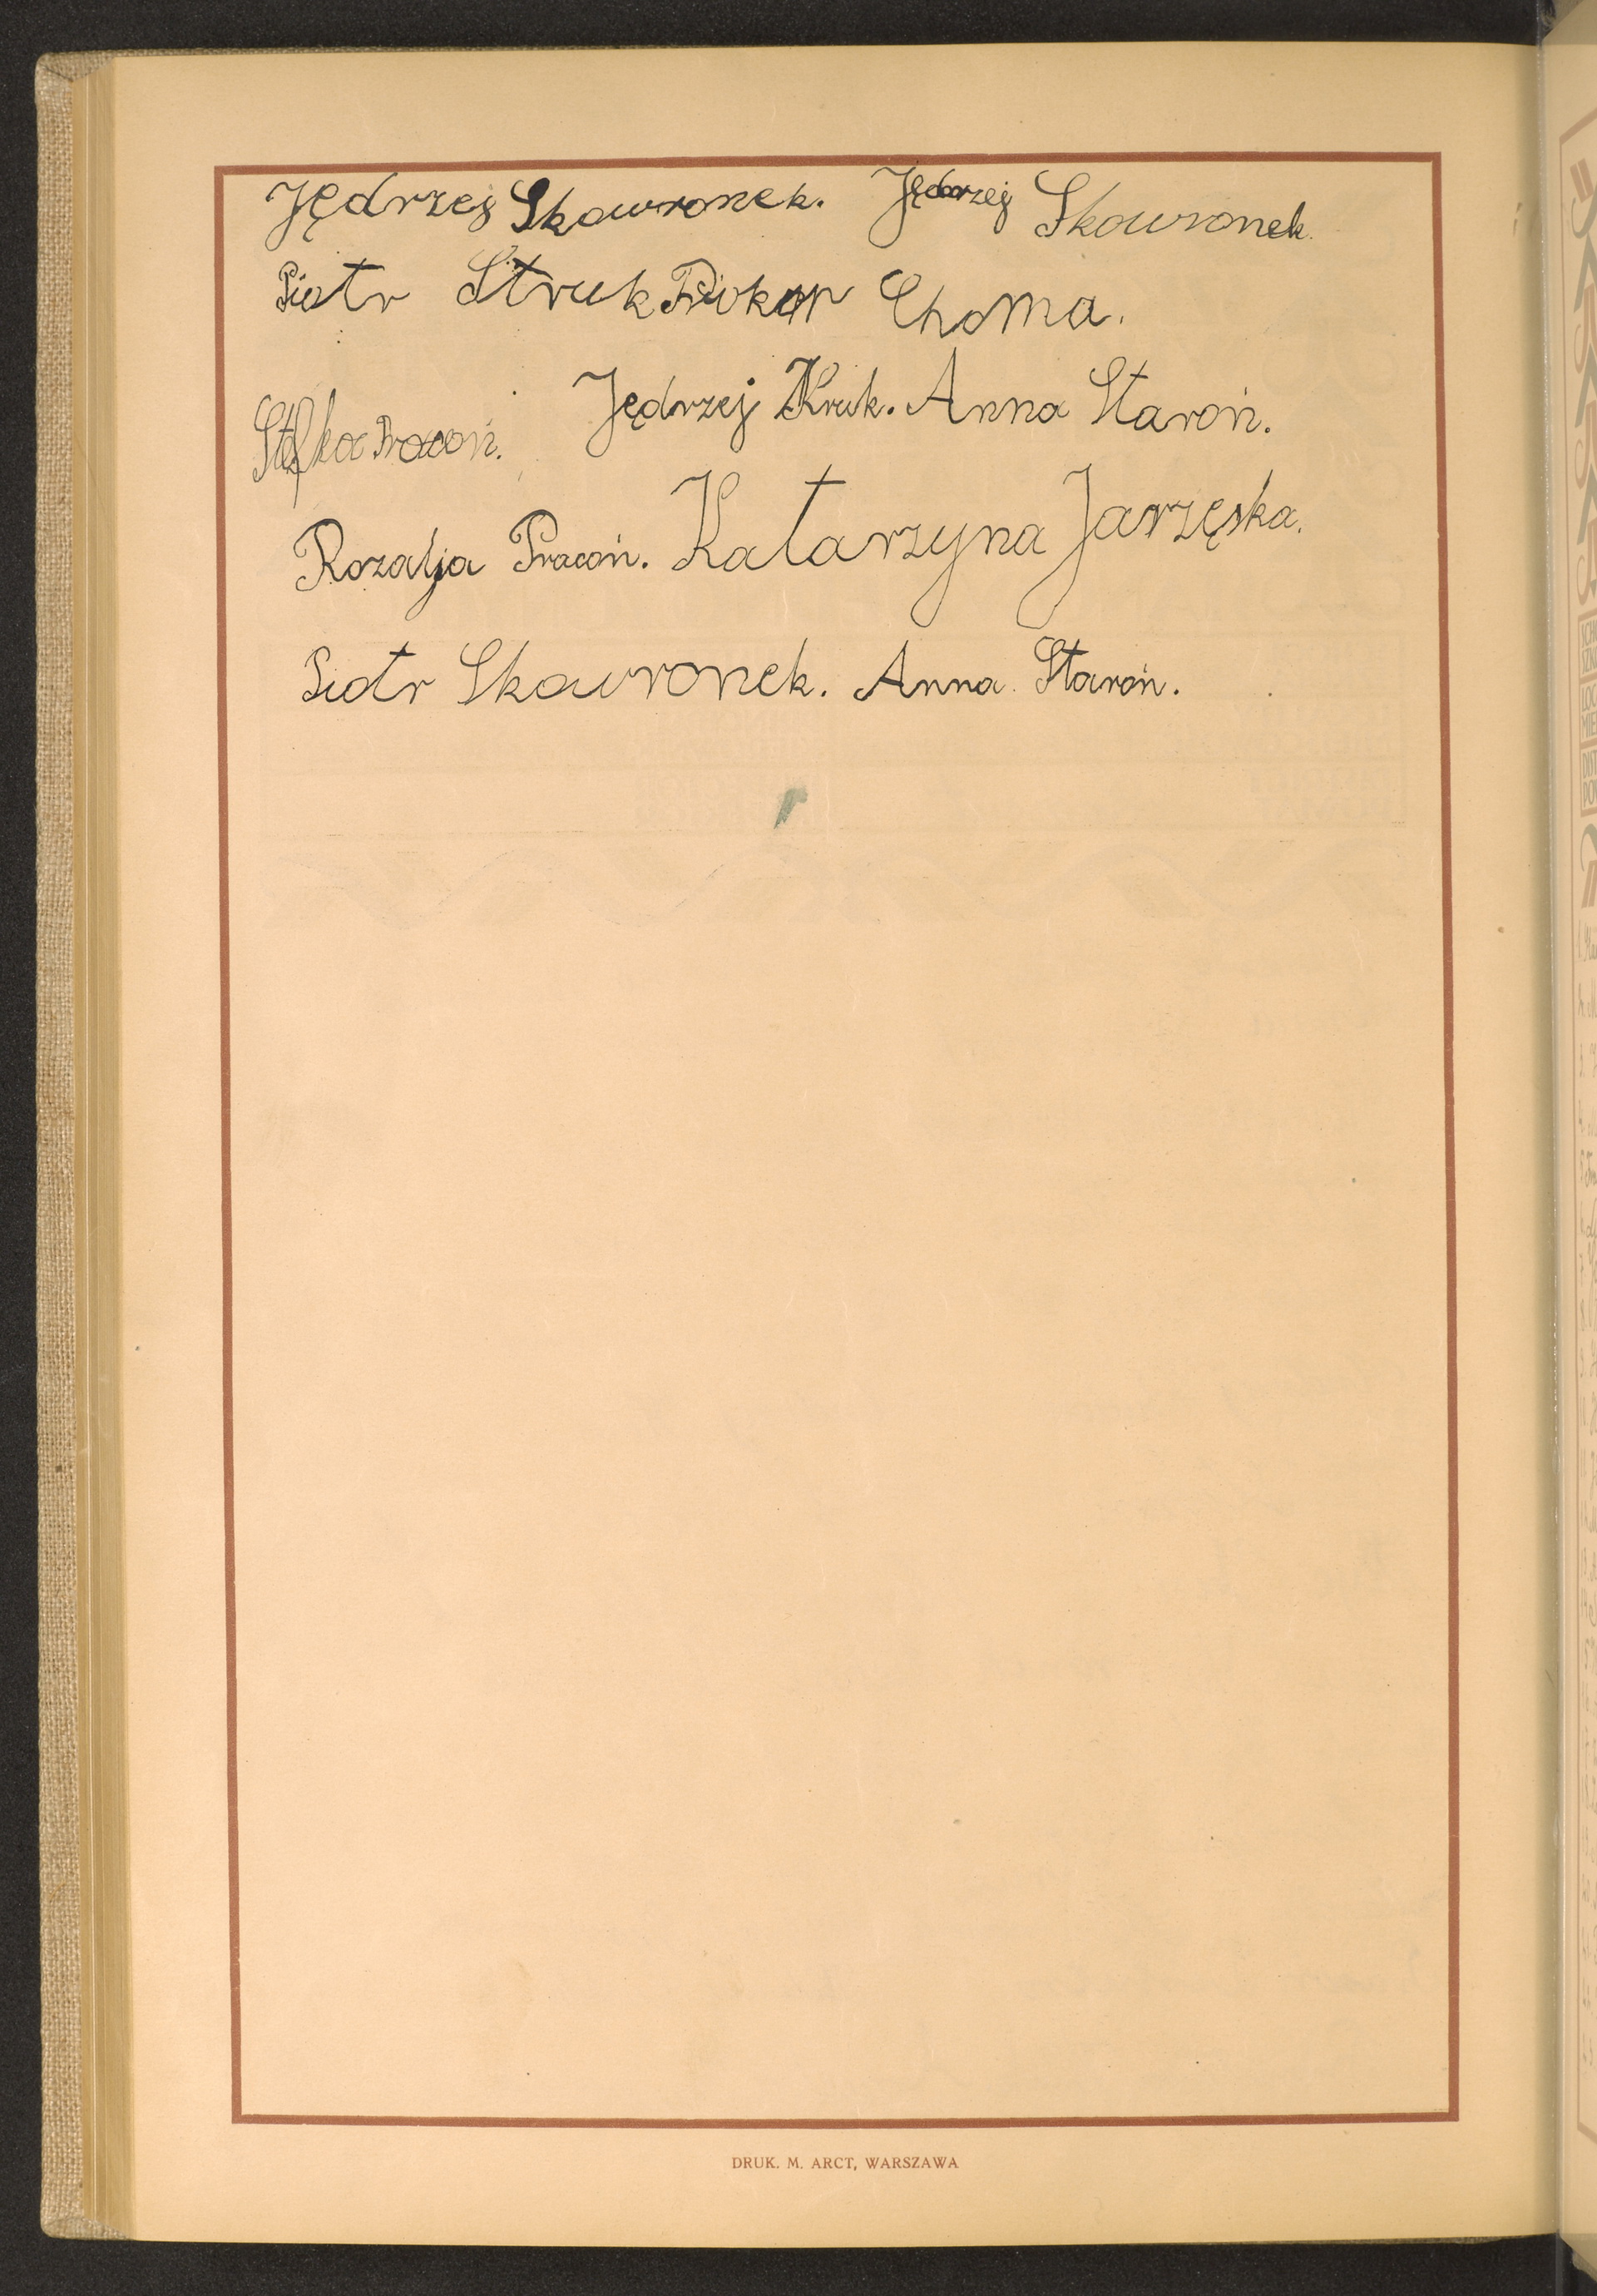 Jędrzej Skowronek. Jędrzej Skowronek.
Piotr Struk Prokop Choma.
Jędrzej Kruk. Anna Staroń.
Stefka Pracoń.
Rozalja Pracoń. Katarzyna Jarzęska.
Piotr Skowronek. Anna Staroń.
DRUK. M. ARCT, WARSZAWA